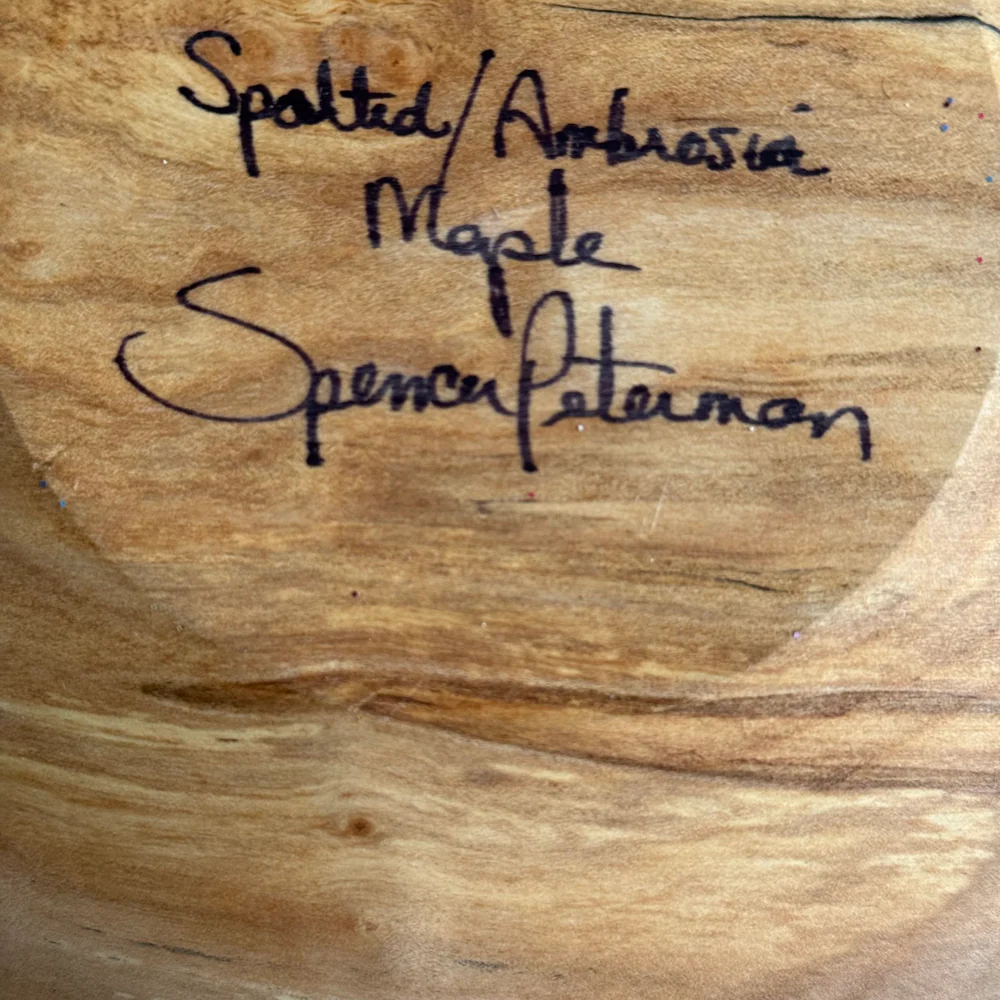 Spalted/Ambrosia
Maple
Spencer Peterman